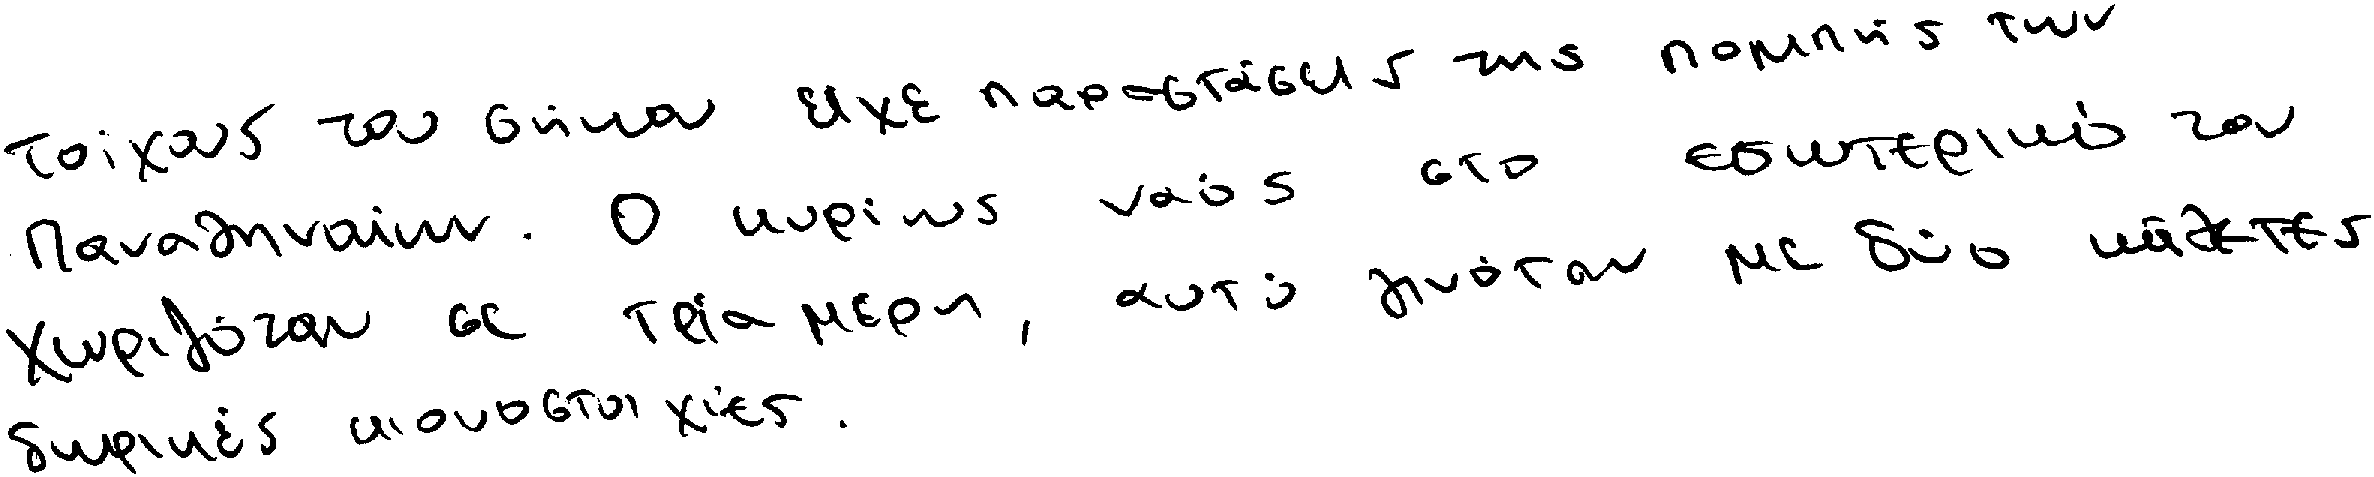 τοίχους του σηκού είχε παραστάσεις της πομπής των
Παναθηναίων. Ο κυρίως ναός στο εσωτερικό του
χωριζόταν σε τρία μερη, αυτό γινόταν με δύο κάθετες
δωρικές κιονοστοιχίες.